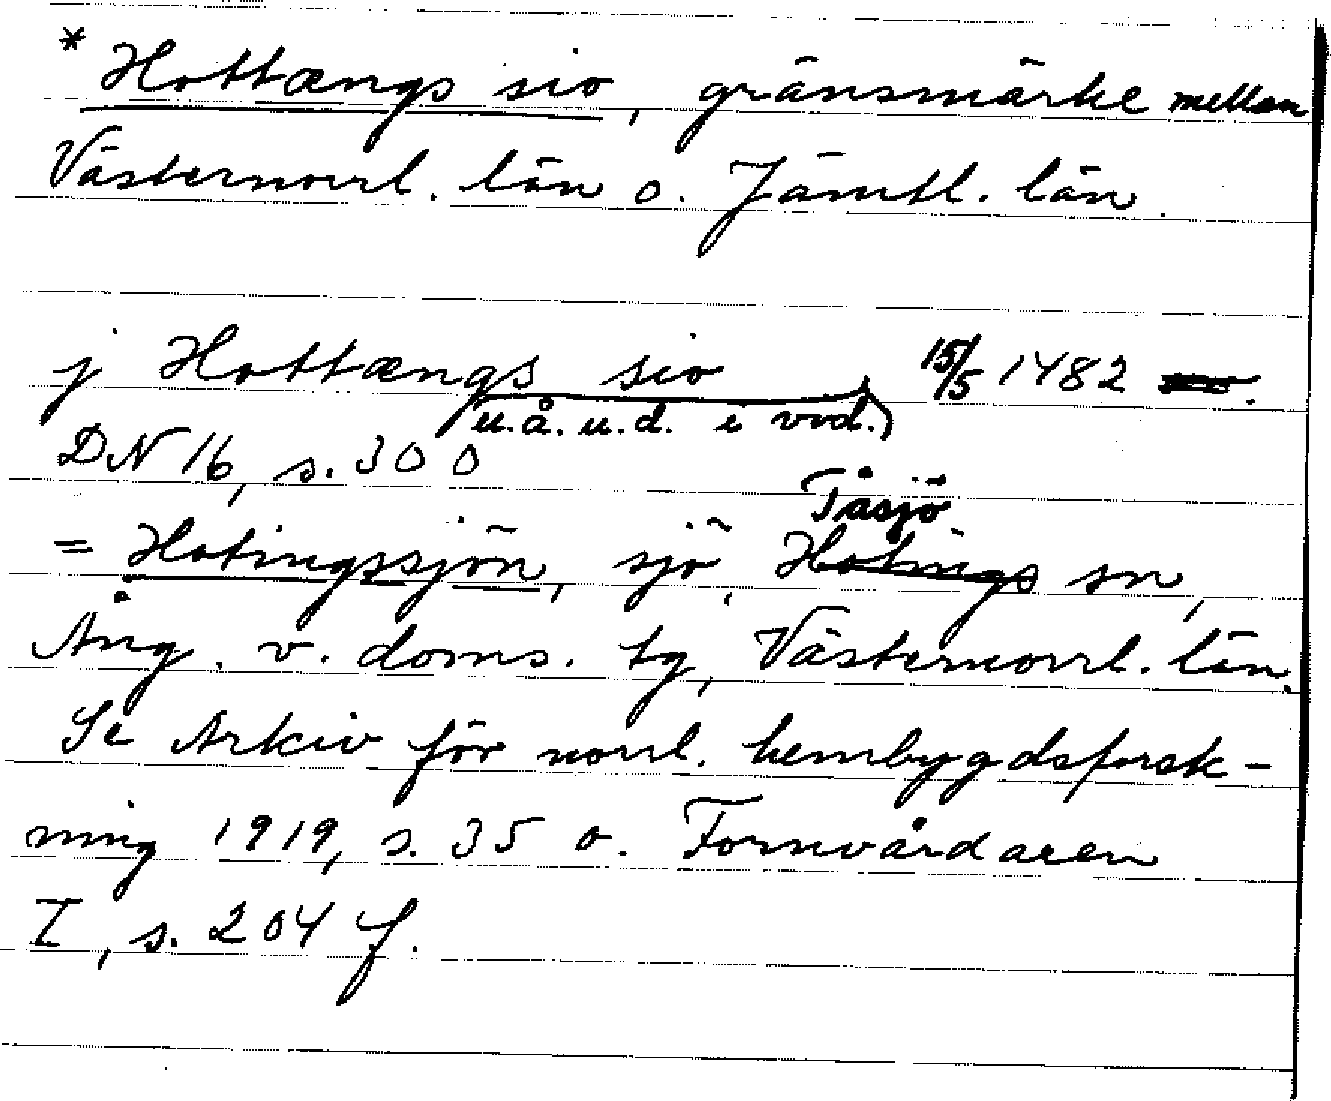 * Hottængs sio, gränsmärke mellan
Västernorrl. län o. Jämtl. län.
j Hottængs sio 15/5 1482
u.å. u.d. i vid.)
DN 16, s. 300
Tåsjö
= Hotingssjön, sjö, Hotings sn,
Ång. v. doms. tg, Västernorrl. län.
Se Arkiv för norrl. hembygdsforsk-
ning 1919, s. 35 o. Fornvårdaren
I, s. 204 f.